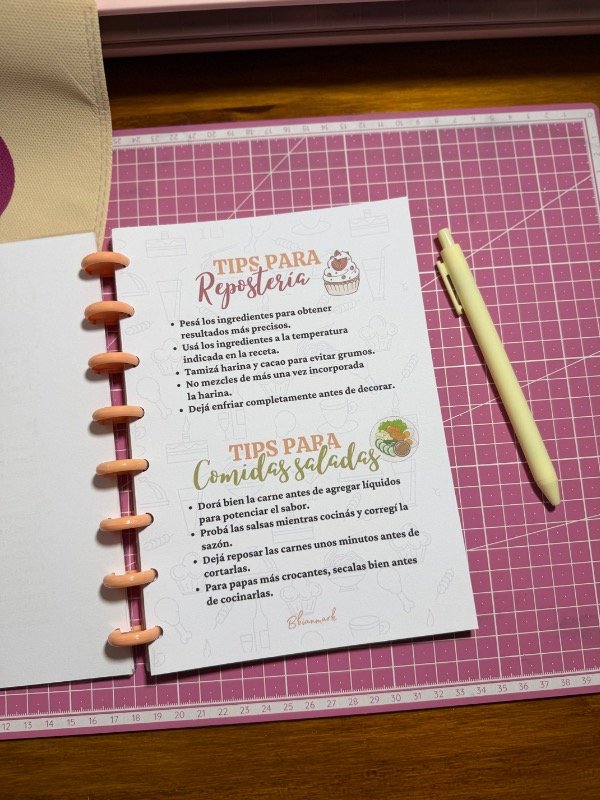 TIPS PARA
Repostería
• Pesá los ingredientes para obtener
resultados más precisos.
• Usá los ingredientes a la temperatura
indicada en la receta.
• Tamizá harina y cacao para evitar grumos.
• No mezcles de más una vez incorporada
la harina.
• Dejá enfriar completamente antes de decorar.
TIPS PARA
Comidas saladas
• Dorá bien la carne antes de agregar líquidos
para potenciar el sabor.
• Probá las salsas mientras cocinás y corregí la
sazón.
• Dejá reposar las carnes unos minutos antes de
cortarlas.
• Para papas más crocantes, secalas bien antes
de cocinarlas.
Bbianmark
12 13 14 15 16 17 18 19 20 21 22 23 24 25 26 27 28 29 30 31 32 33 34 35 36 37 38 39